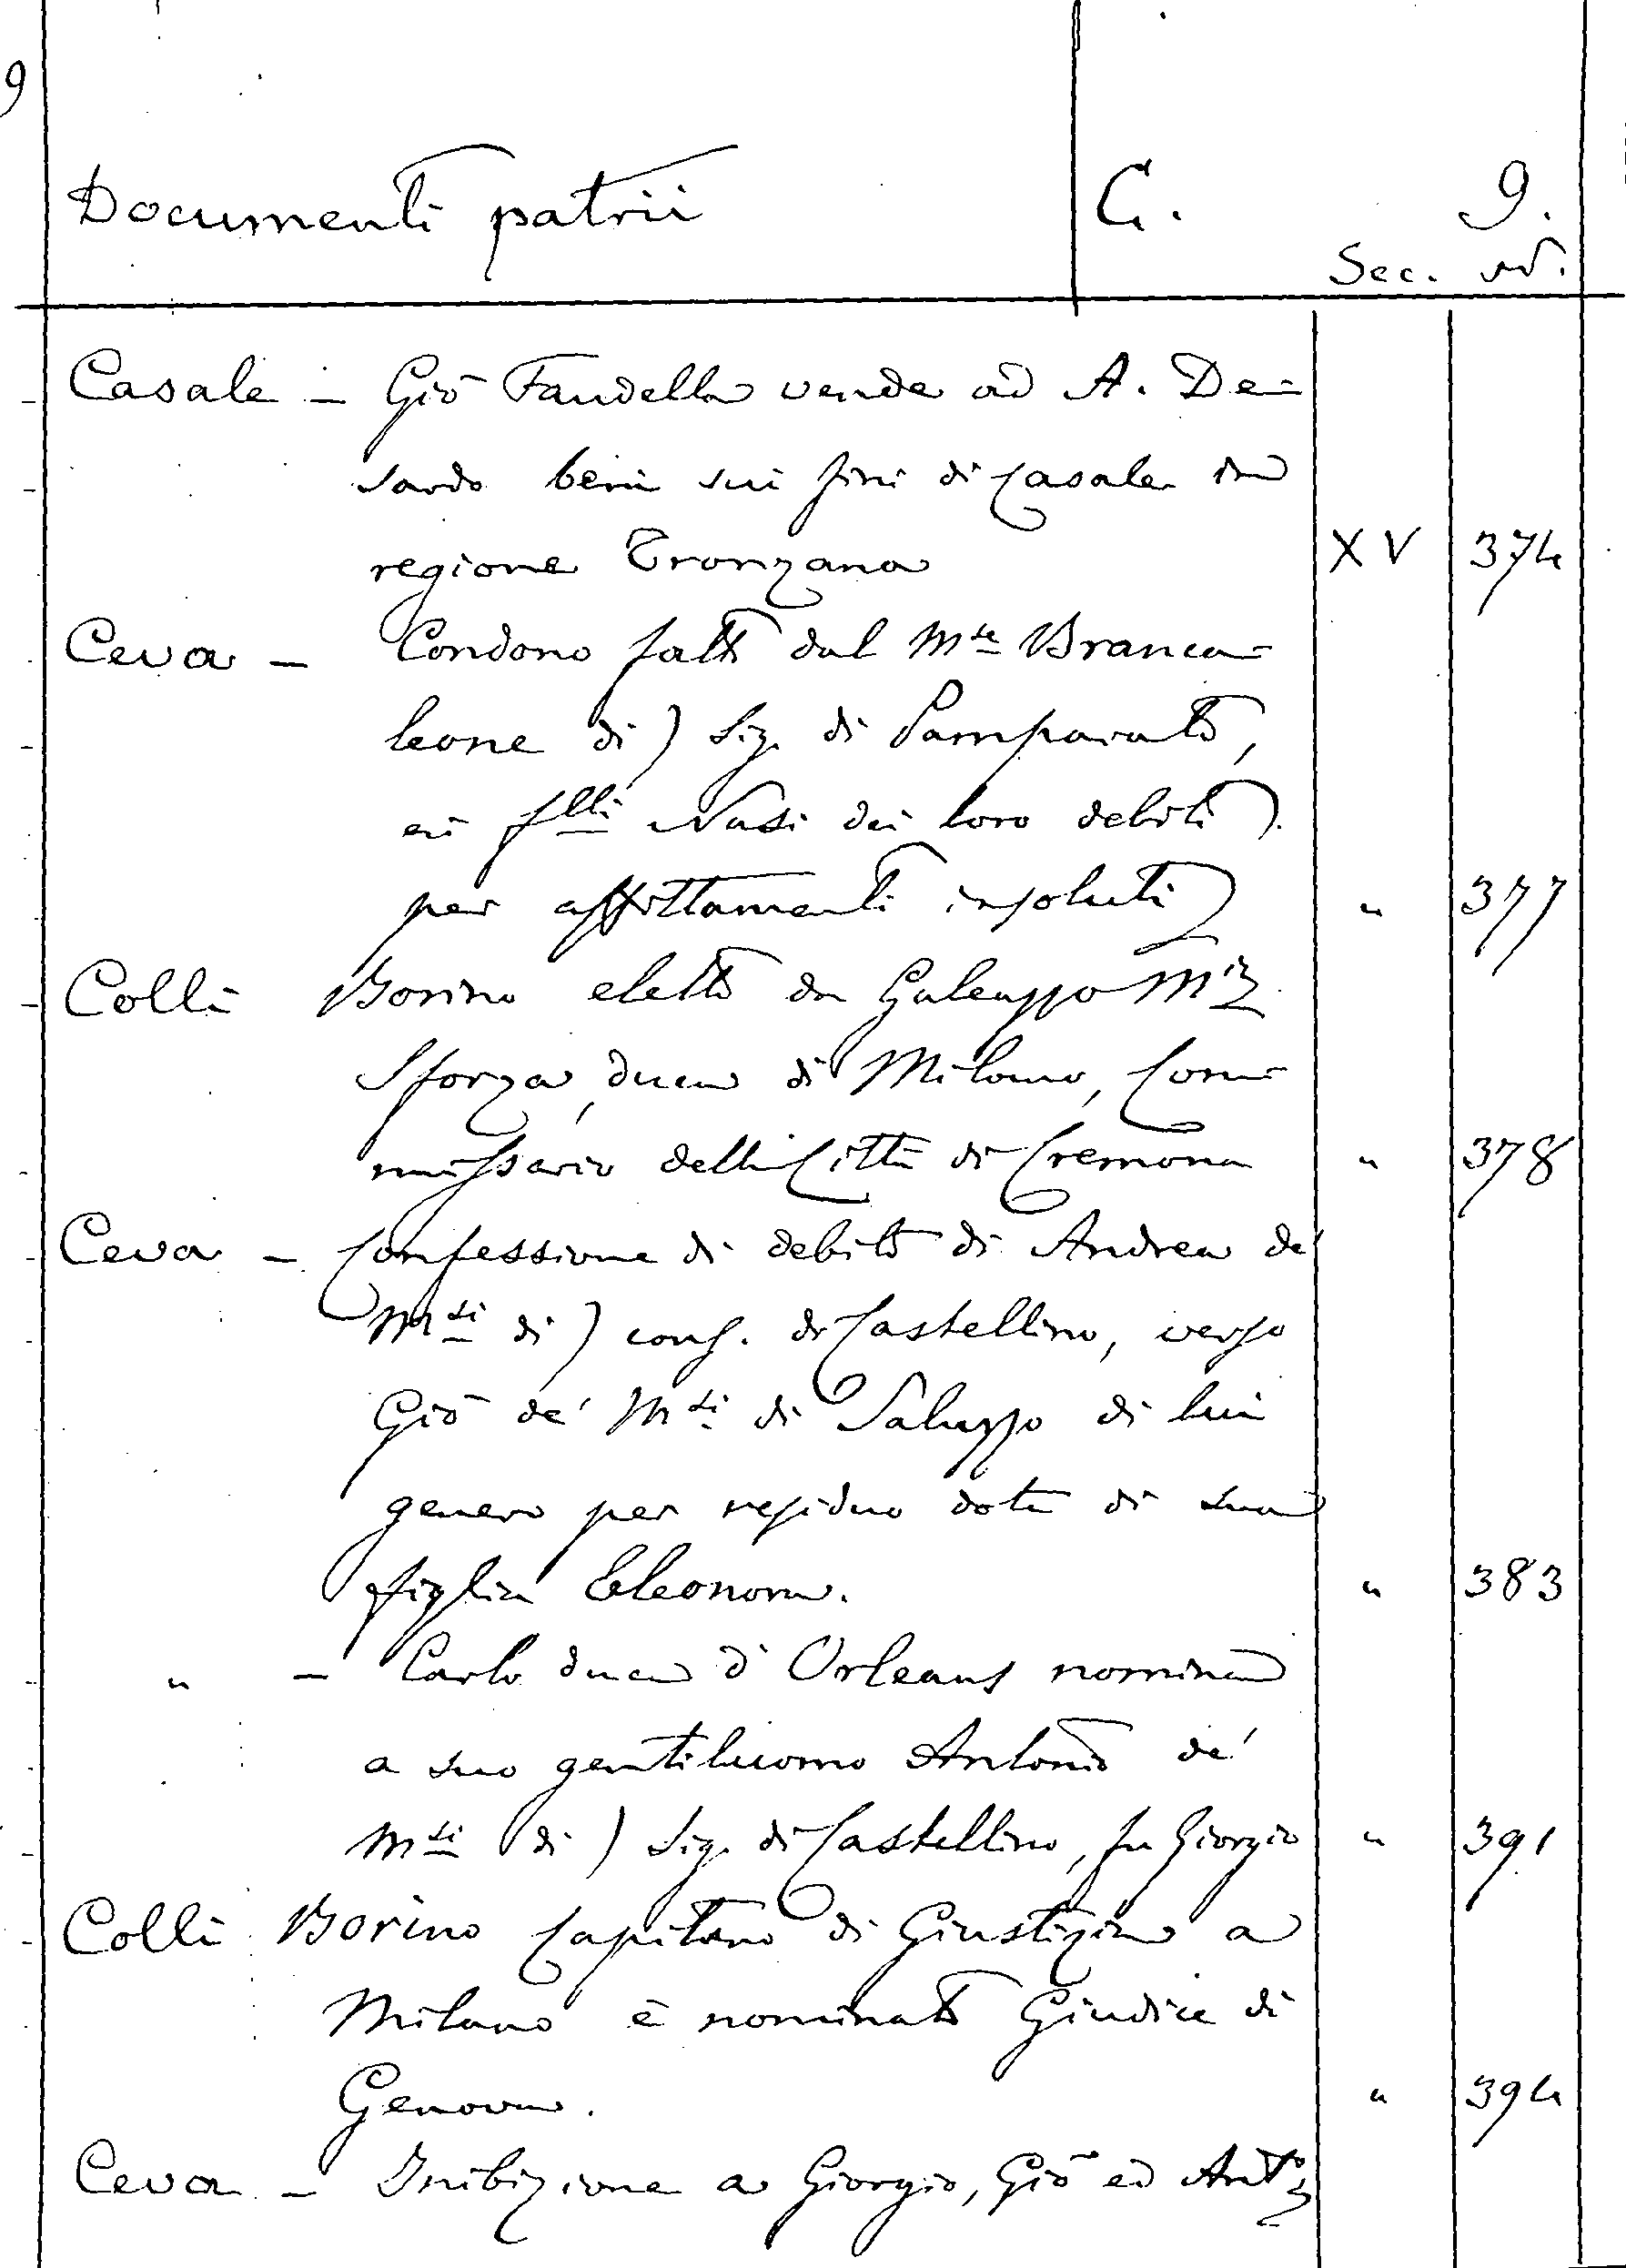 9
Documenti patrii C. 9.
Sec. N.
Casale - Giō Fandella vende ad A. De-
sardo beni sui fini di Casale in
regione Tronzana XV 374
Ceva - Condono fatto dal Mse Branca-
leone di) Sig. di Pamparato,
ai flli Nasi dei loro debiti
per affittamenti insoluti " 377
Colli Borino eletto da Galeazzo Ma
Sforza, duca di Milano, Com-
missario della Città di Cremona " 378
Ceva - Confessione di debito di Andrea de'
Msi di) cons. di Castellino, verso
Giō de' Msi di Saluzzo di lui
genero per residuo dote di sua
figlia Eleonora. " 383
" - Carlo duca d'Orleans nomina
a suo gentiluomo Antonio de'
Msi di) Sig. di Castellino, fu Giorgio " 391
Colli Borino Capitano di Giustizia a
Milano è nominato Giudice di
Genova. " 394
Ceva - Inibizione a Giorgio, Giō ed Anto